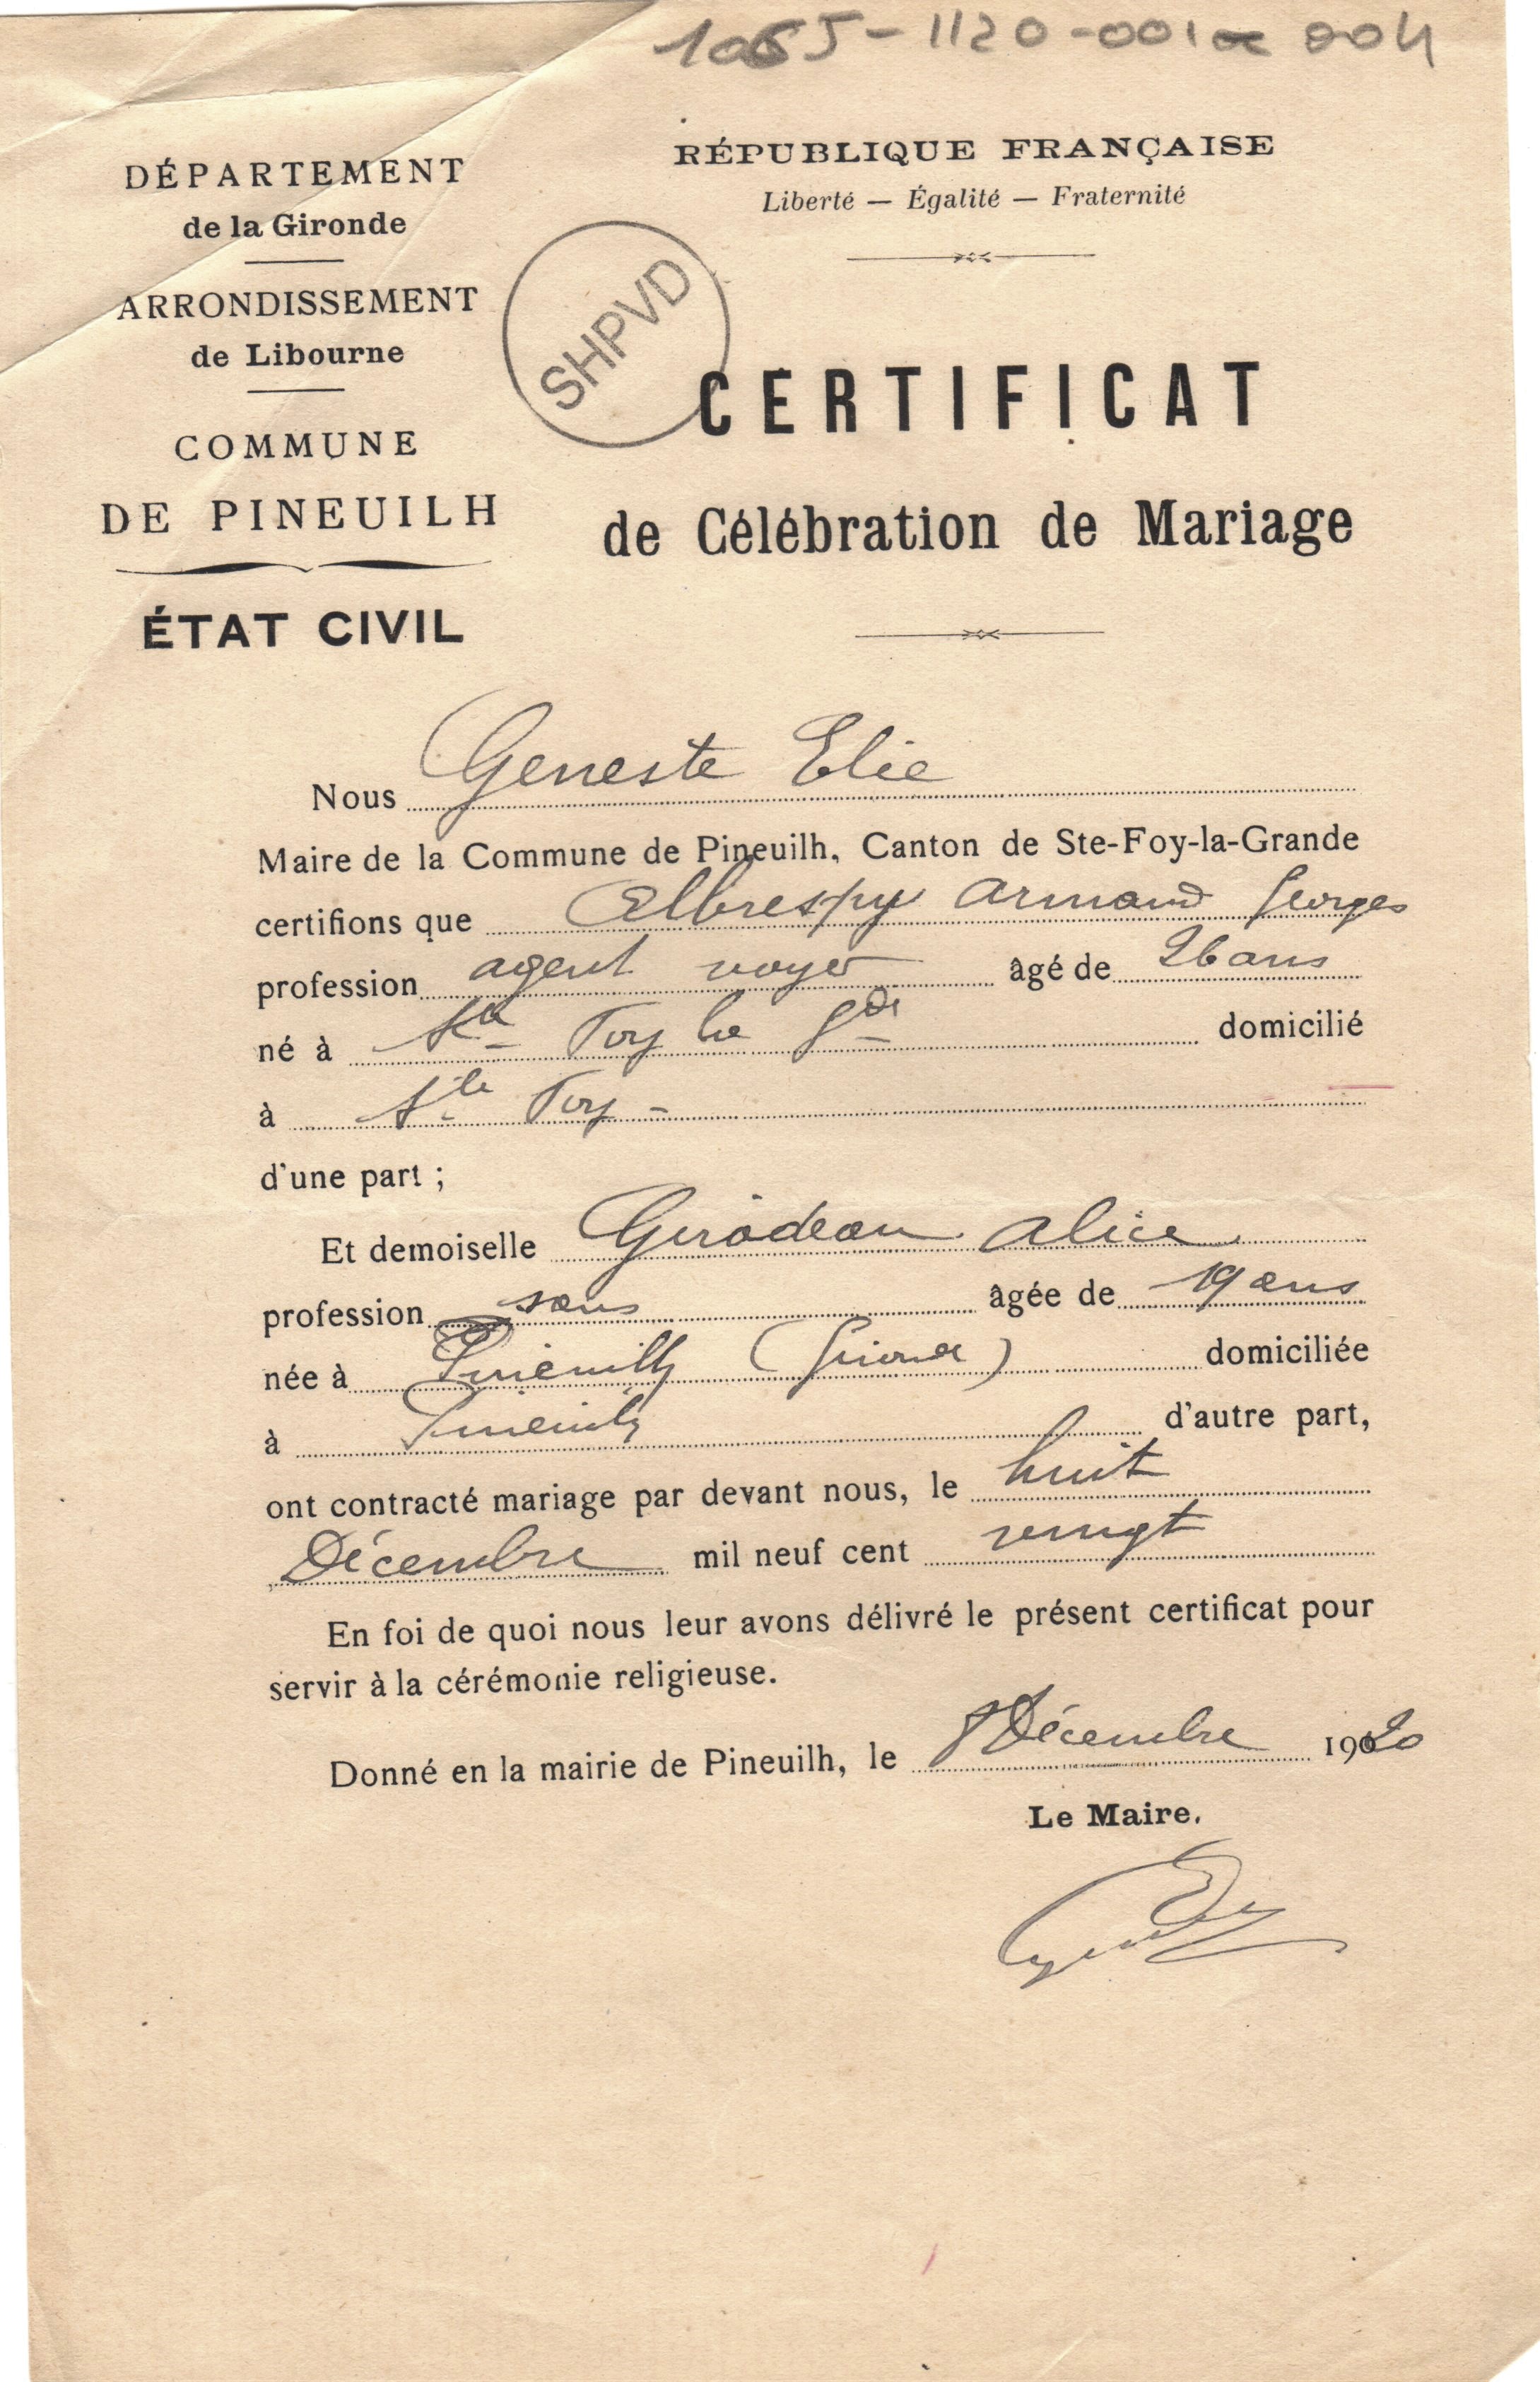 1065-1120-001 a 004
DÉPARTEMENT
de la Gironde
ARRONDISSEMENT
de Libourne
COMMUNE
DE PINEUILH
ÉTAT CIVIL
RÉPUBLIQUE FRANÇAISE
Liberté — Égalité — Fraternité
SHPVD
CERTIFICAT
de Célébration de Mariage
Nous Geneste Elie
Maire de la Commune de Pineuilh, Canton de Ste-Foy-la-Grande
certifions que Albrespy Armand Georges
profession agent voyer âgé de 26 ans
né à Ste Foy la Gde domicilié
à Ste Foy -
d'une part ;
Et demoiselle Girodeau Alice
profession sans âgée de 19 ans
née à Pineuilh (Gironde) domiciliée
à Pineuilh d'autre part,
ont contracté mariage par devant nous, le huit
Décembre mil neuf cent vingt
En foi de quoi nous leur avons délivré le présent certificat pour
servir à la cérémonie religieuse.
Donné en la mairie de Pineuilh, le 8 Décembre 1920
Le Maire.